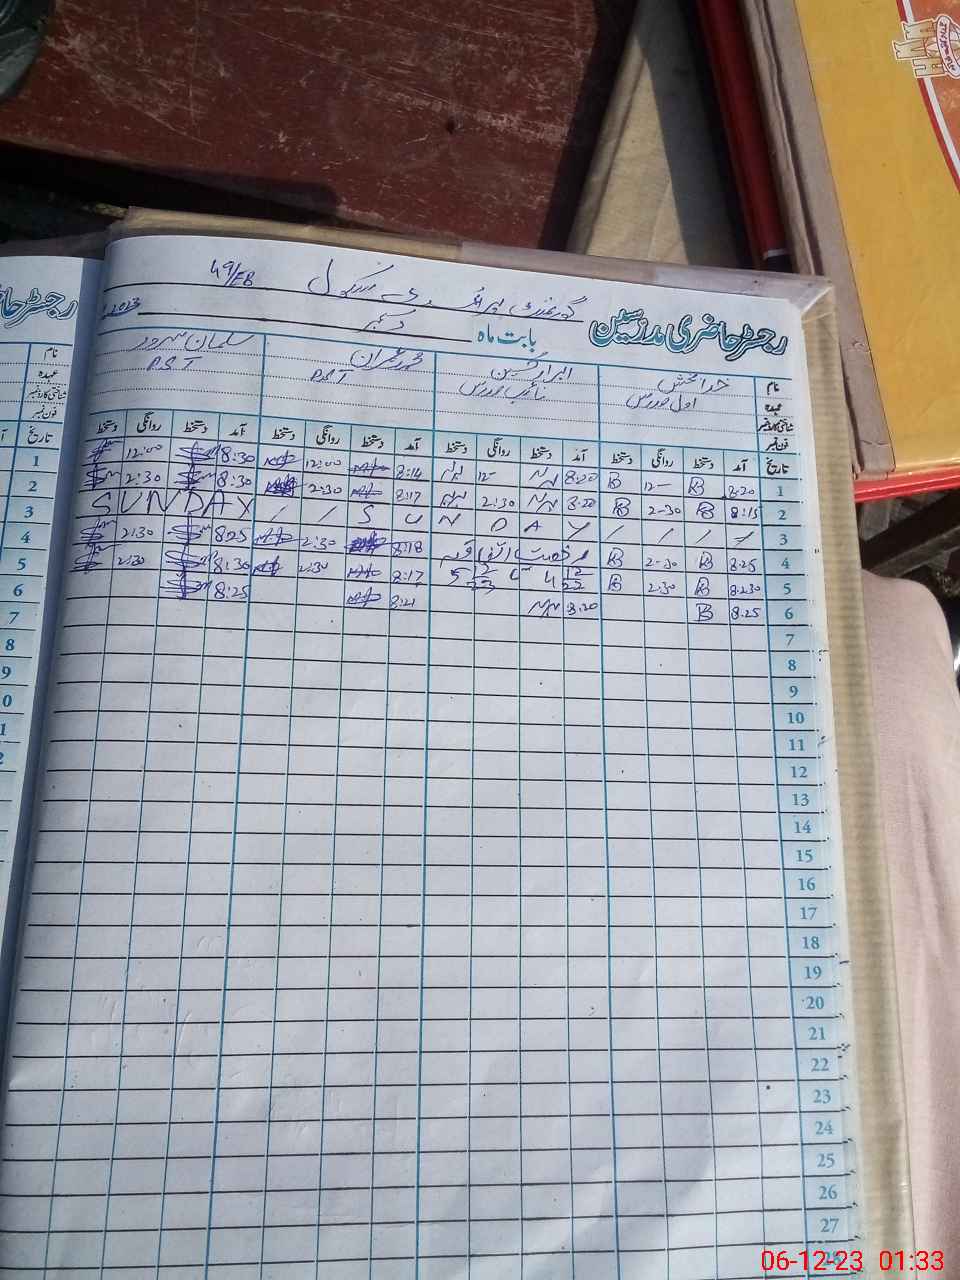 رجسٹر حاضری مدرسین گورنمنٹ پرائمری سکول 49/EB
بابت ماہ دسمبر 2023
نام خدا بخش ابرار حسین محمد عمران سلمان سرور
عہدہ اول مدرس نائب مدرس P.S.T P.S.T
شناختی کارڈ نمبر
فون نمبر
تاریخ آمد دستخط روانگی دستخط آمد دستخط روانگی دستخط آمد دستخط روانگی دستخط آمد دستخط روانگی دستخط
1 8:20 B 12- B 8:20 12- 8:14 12:00 8:30 12:00
2 8:15 B 2-30 B 8:20 2:30 8:17 2:30 8:30 2:30
3 SUNDAY / / S U N D A Y / / / /
4 8:25 B 2-30 B رخصت اتفاقیہ 8:18 2:30 8:25 2:30
5 8:230 B 2:30 B 8:17 2:30 8:30 2:30
6 8:25 B 8:20 8:21 8:25
7
8
9
10
11
12
13
14
15
16
17
18
19
20
21
22
23
24
25
26
27
28
رجسٹر حا
نام
عہدہ
شناختی کارڈ نمبر
فون نمبر
تاریخ
1
2
3
4
5
6
7
8
9
0
1
2
06-12-23 01:33